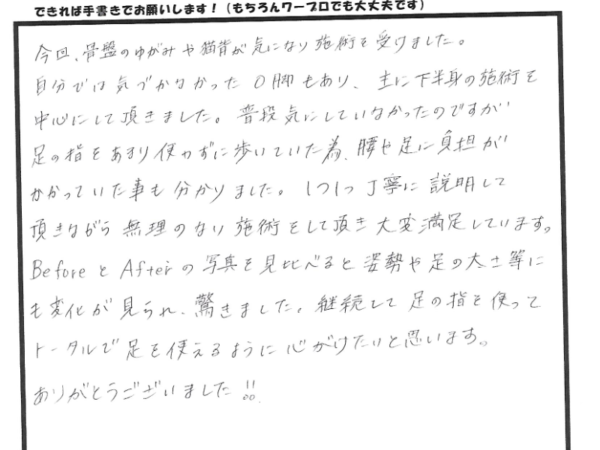 できれば手書きでお願いします！（もちろんワープロでも大丈夫です）
今回、骨盤のゆがみや猫背が気になり施術を受けました。
自分では気づかなかったO脚もあり、主に下半身の施術を
中心にして頂きました。普段気にしていなかったのですが
足の指をあまり使わずに歩いていた為、腰や足に負担が
かかっていた事も分かりました。1つ1つ丁寧に説明して
頂きながら無理のない施術をして頂き大変満足しています。
BeforeとAfterの写真を見比べると姿勢や足の太さ等に
も変化が見られ、驚きました。継続して足の指を使って
トータルで足を使えるように心がけたいと思います。
ありがとうございました!!